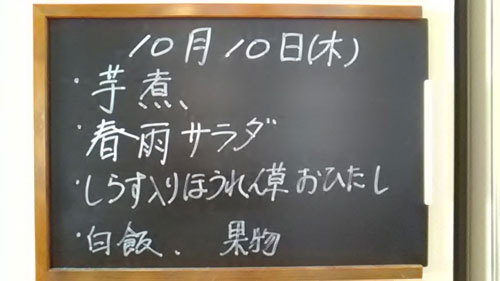 10月10日(木)
・芋煮
・春雨サラダ
・しらす入りほうれん草おひたし
・白飯、果物